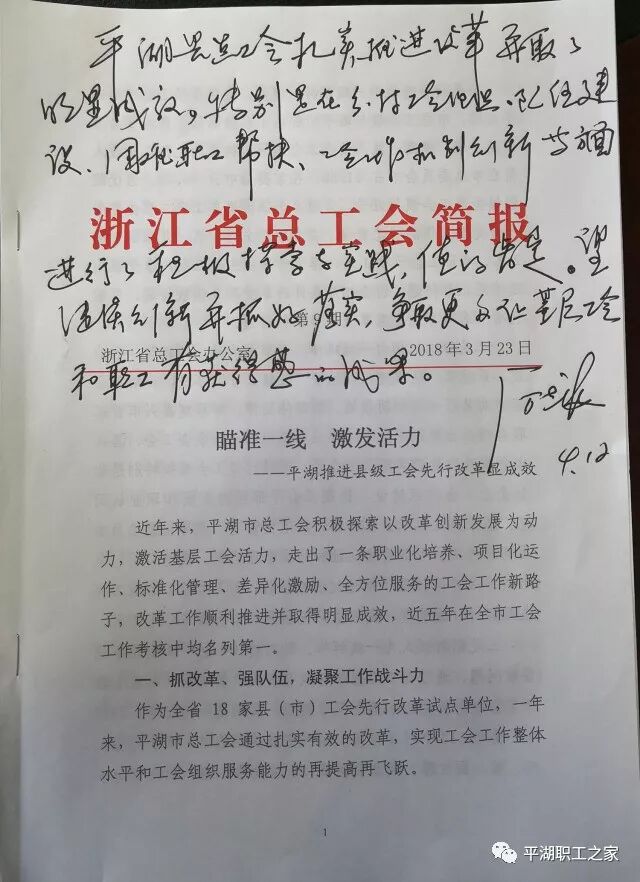 平湖县总工会扎实推进改革并取了
明显成效。特别是在乡村工会组织、队伍建
设、困难职工帮扶、工会工作机制创新等方面
浙江省总工会简报
进行了积极探索与实践，值得肯定。望
继续创新并抓好落实，争取更多让基层工会
第9期
浙江省总工会办公室 2018年3月23日
和职工有获得感的成果。
4.12
瞄准一线 激发活力
——平湖推进县级工会先行改革显成效
近年来，平湖市总工会积极探索以改革创新发展为动
力，激活基层工会活力，走出了一条职业化培养、项目化运
作、标准化管理、差异化激励、全方位服务的工会工作新路
子，改革工作顺利推进并取得明显成效，近五年在全市工会
工作考核中均名列第一。
一、抓改革、强队伍，凝聚工作战斗力
作为全省 18 家县（市）工会先行改革试点单位，一年
来，平湖市总工会通过扎实有效的改革，实现工会工作整体
水平和工会组织服务能力的再提高再飞跃。
1
平湖职工之家